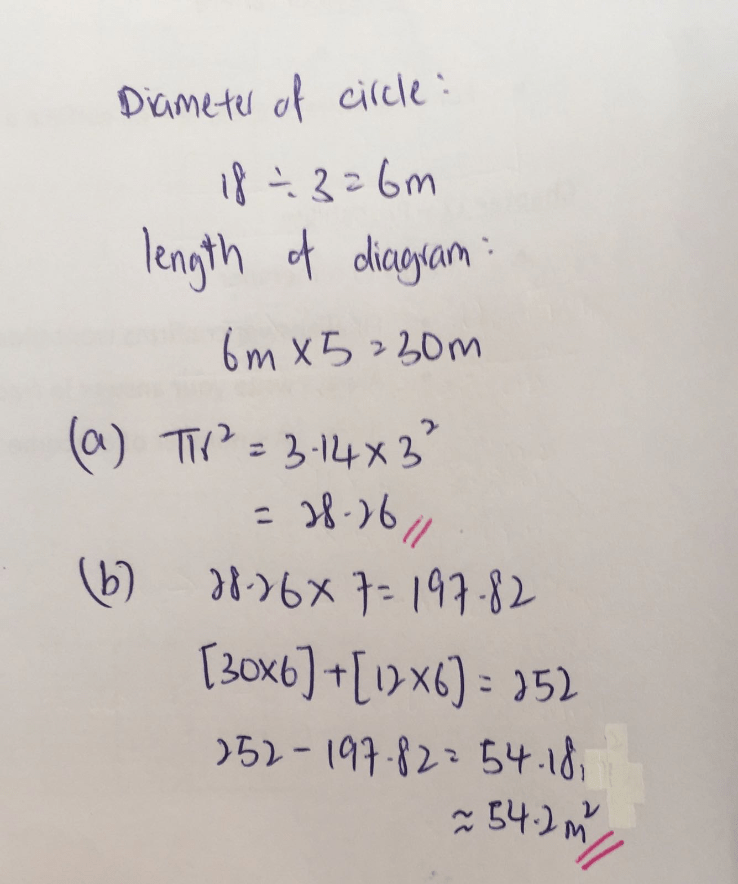 Diameter of circle:
18 ÷ 3 = 6m
length of diagram:
6m × 5 = 30m
(a) πr² = 3.14 × 3²
= 28.26 //
(b) 28.26 × 7 = 197.82
[30×6] + [12×6] = 252
252 - 197.82 = 54.18,
≈ 54.2 m² //